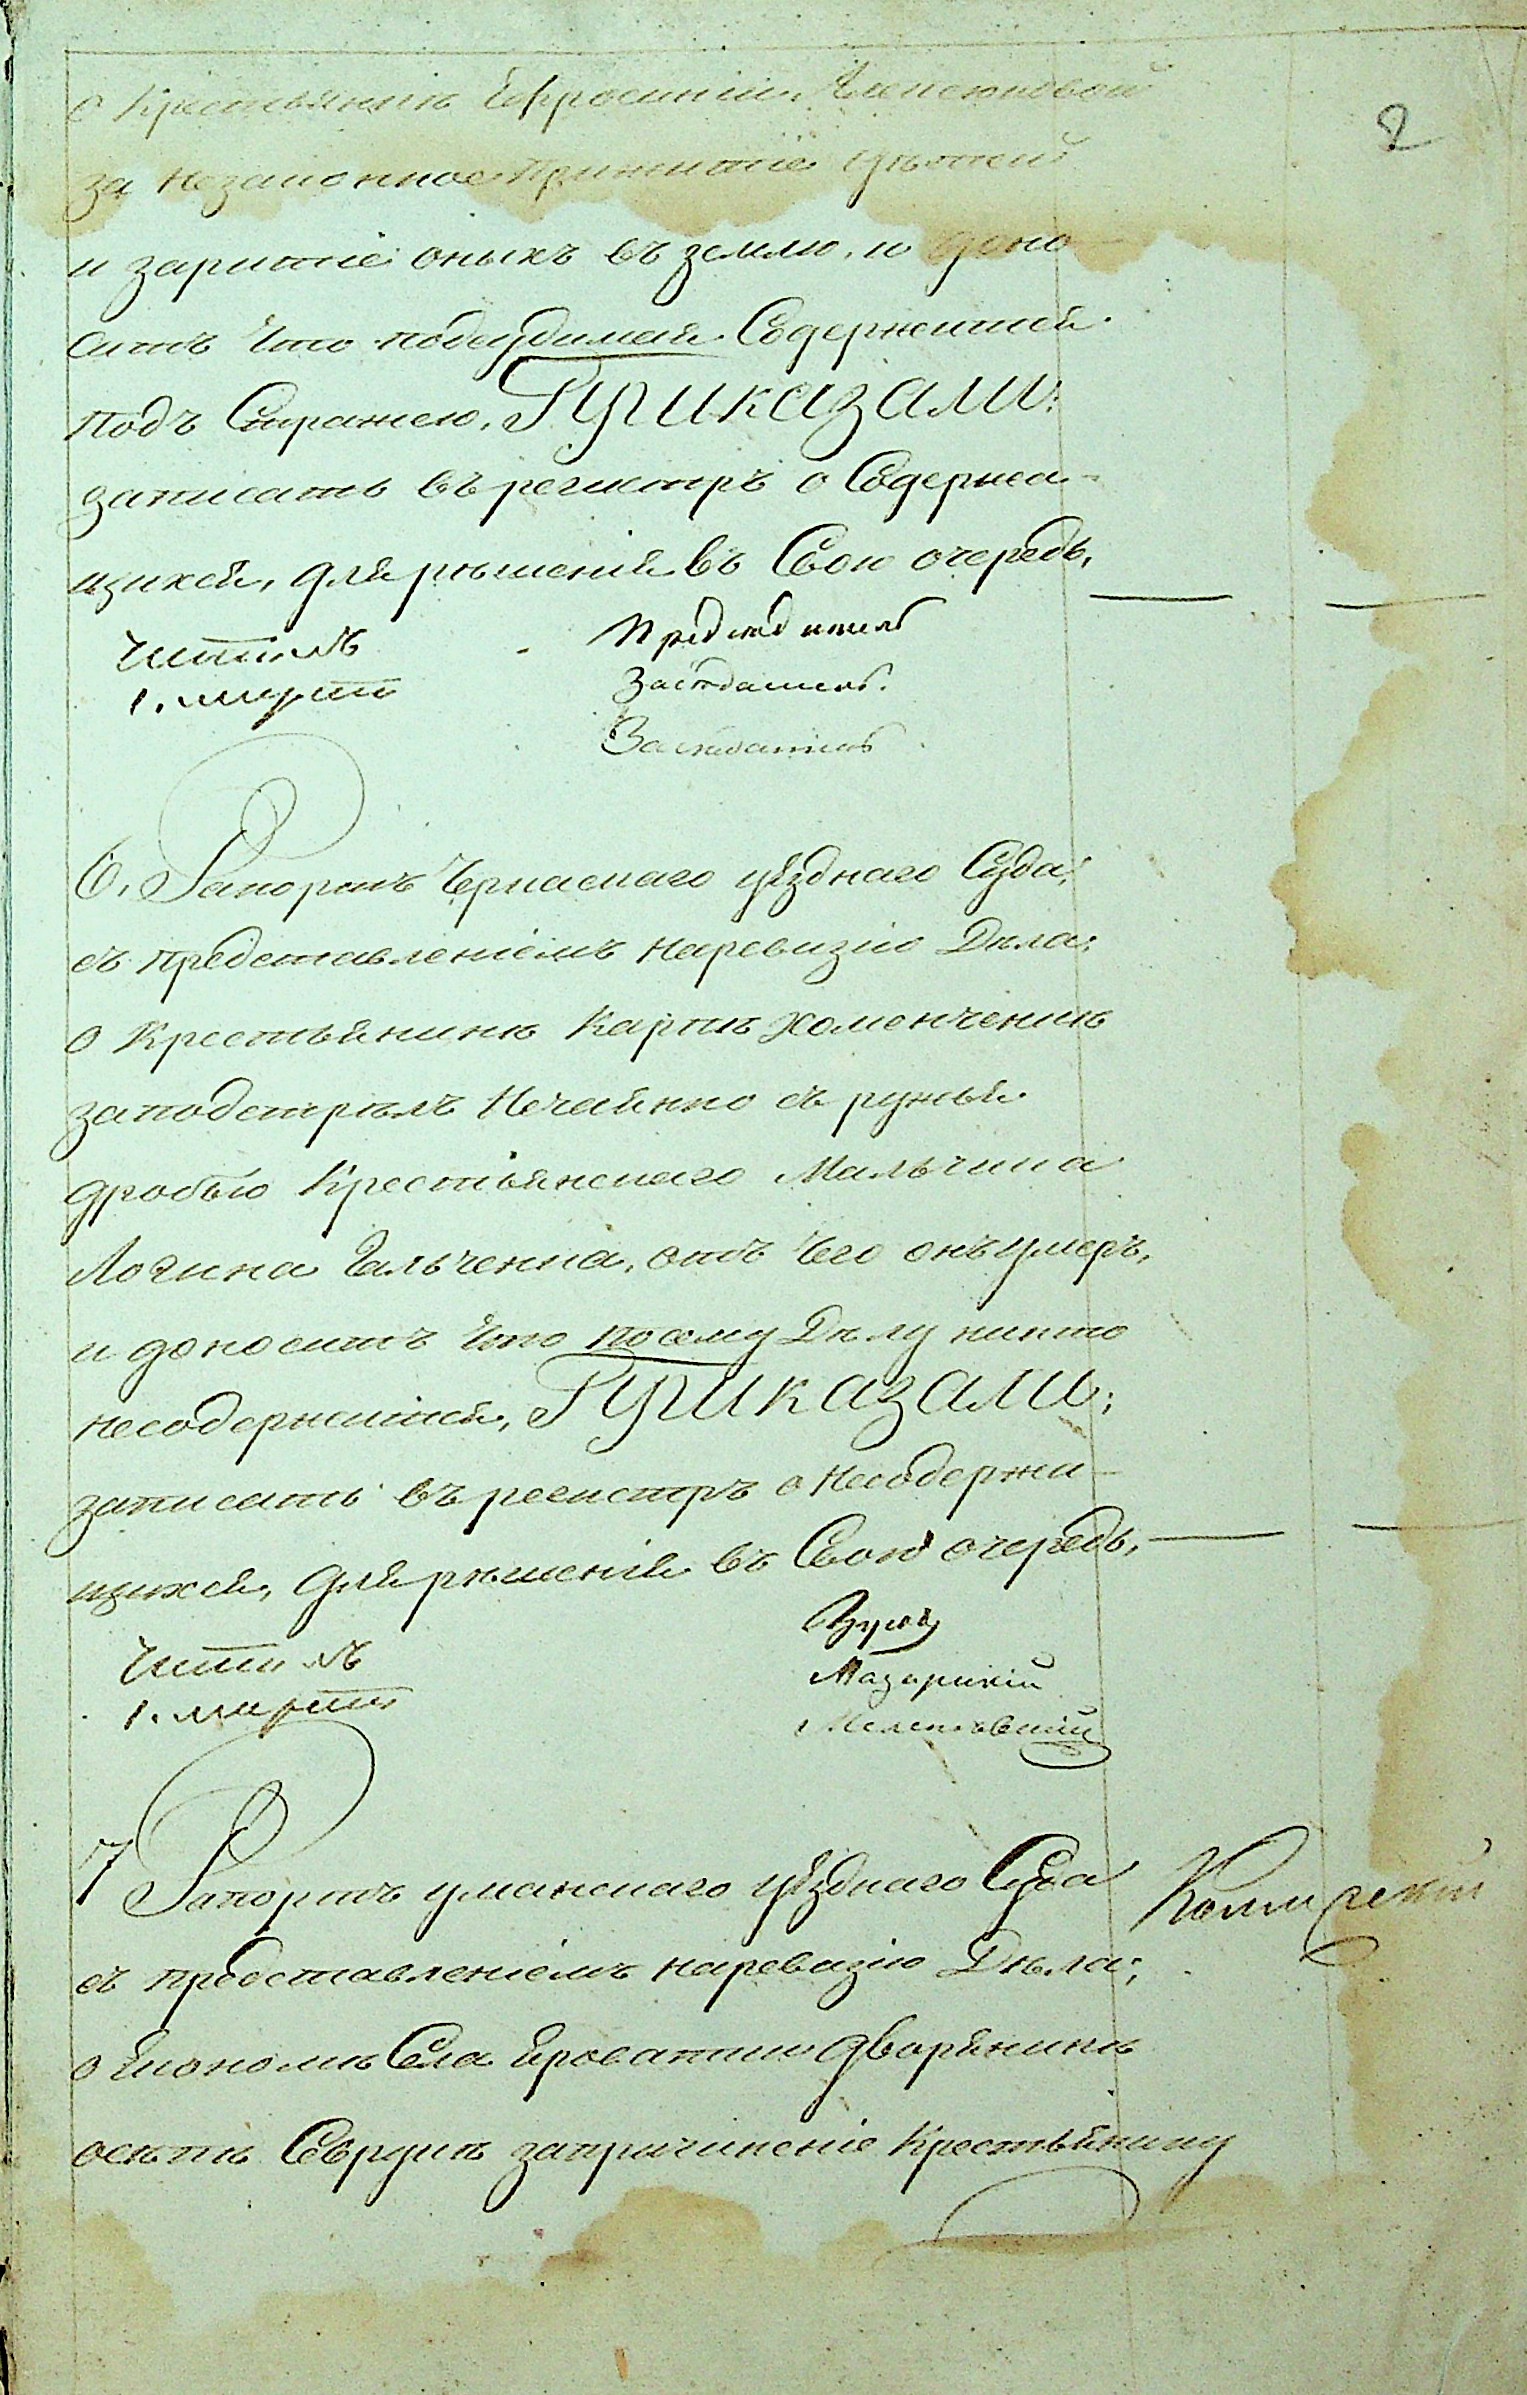 2
о Крестьянкѣ Ефросиніи Алексюковой
за незаконное прижитіе дѣтей
и зарытіе оныхъ въ землю, и доно
ситъ что подсудимая Содержится
подъ Стражею, Приказали:
записать въ регистръ о Содержа-
щихся, для рѣшенія въ Свою очередь,
Читалъ
1. марта
Предсѣдатель
Засѣдатель.
Засѣдатель
6, Рапортъ Черкаскаго уѣзднаго Суда,
съ представленіемъ на ревизію Дѣла;
о Крестьянинѣ Карпѣ Хоменченкѣ
за подстрѣлъ Нечаянно съ ружья
дробью Крестьянскаго Мальчика
Логина Гальченка, отъ чего онъ умеръ,
и доноситъ что по сему Дѣлу никто
несодержится, Приказали;
записать въ регистръ о Несодержа-
щихся, для рѣшенія въ Свою очередь,
Читалъ
1. марта
7 Рапортъ уманскаго уѣзднаго Суда
съ представленіемъ на ревизію Дѣла;
о Економѣ Села Кроватки дворянинѣ
за причиненіе Крестьянину